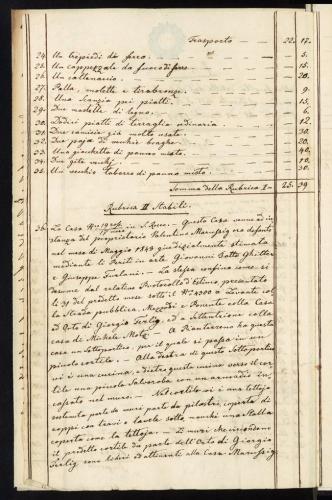 Trasporto — 22. 17.
24. Un trepiedi di ferro — 5.
25. Un cappezzale da fuoco di ferro — 15.
26. Un callenario — 20.
27. Palla, molette e — 9.
28. Una Scanzia pei piatti — 15.
29. Due modelli di legno — 6.
30. Dodici piatti di terraglia ordinaria — 12.
31. Due camicie già molto usate — 30.
32. Due paja di vecchie braghe — 20.
33. Una giacchetta di panno misto — 40.
34. Due vecchj — 10.
35. Un vecchio Tabarro di panno misto — 30.
Somma della Rubrica I — 25. 39
Rubrica II Stabili.
36. La Casa N° in S. Rocco. — Questa Casa venne ad in-
stanza del proprietario Valentino Marussig ora defonto
nel mese di Maggio 1843 giudizialmente stimata
mediante li Periti in arte Giovanni Batta
e Giuseppe Furlani. — La stessa confina come si
desume dal relativo Protocollo d'Estimo presentato
li 31 del predetto mese sotto il N° 4300 a Levante col-
la Strada pubblica, Mezzodì e Ponente colla Casa
ed Orto di Giorgio, ed a Settentrione colla
casa di Michele. — A Pianterreno ha questa
casa un sottoportico, per il quale si passa in un
piccolo cortile. — Alla destra di questo Sottoportico
vi è una cucina, e dietro questa cucina verso il cor-
tile una piccola Salvaroba con un armadio in-
cassato nel muro. — Nel cortile vi è una tettoja
sostenuta parte da muri parte da pilastri, coperta di
coppi con travi e tavole sotto nonchè una Stalla
coperta come la tettoja. — Li muri che circondano
il predetto cortile da parte dell'Orto di Giorgio
sono ed attinenti alla Casa Marussig.